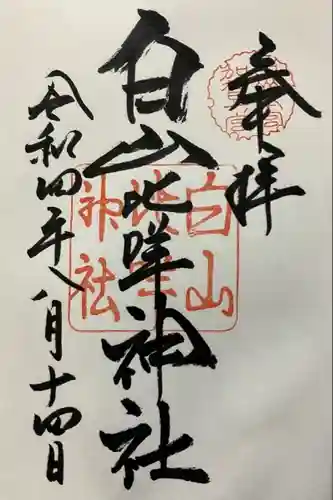 奉拝
白山比咩神社
令和四年八月十四日
白山
比咩
神社